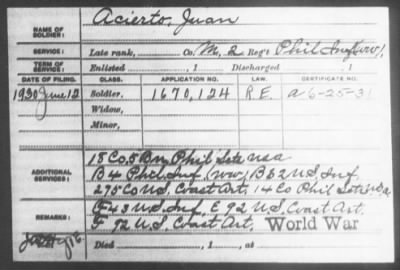 NAME OF SOLDIER: Acierto, Juan
SERVICE: Late rank, Co. M, 2 Reg't Phil Inf (ww)
TERM OF SERVICE: Enlisted , 1 Discharged , 1
DATE OF FILING. CLASS. APPLICATION NO. LAW. CERTIFICATE NO.
1930 June 12 Soldier, 1670,124 R.E. a 6-25-31
Widow,
Minor,
18 Co, 5 Bn Phil Scts USA
ADDITIONAL SERVICES: B 4 Phil Inf (ww) B 62 U.S. Inf,
275 Co U.S. Coast Art, 14 Co Phil Scts USA,
REMARKS: F 43 U.S. Inf, E 92 U.S. Coast Art.
F 92 U.S. Coast Art, World War
Died , 1 , at